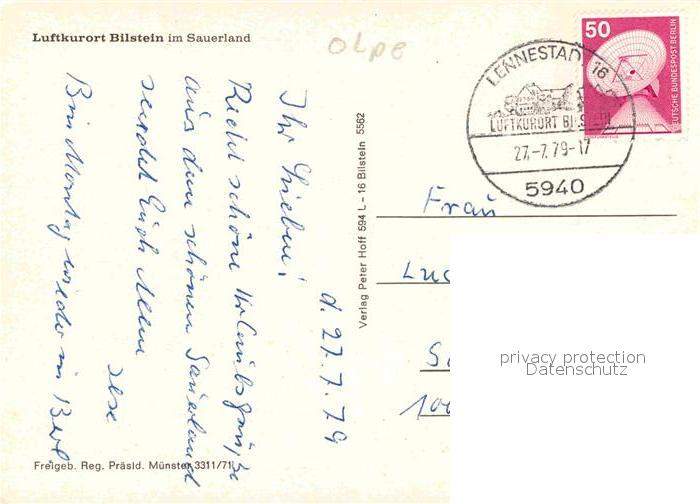 Luftkurort Bilstein im Sauerland
OLPE
50
DEUTSCHE BUNDESPOST BERLIN
LENNESTADT 16
LUFTKURORT BILSTEIN
27.-7.79-17
5940
d. 27.7.79
Ihr Lieben!
Recht schöne Urlaubsgrüße
aus dem schönen Sauerland
sendet Euch Allen
Ilse
Bin Montag wieder in Berl.
Verlag Peter Hoff 594 L - 16 Bilstein 5562
Frau
Luc
S
100
privacy protection
Datenschutz
Freigeb. Reg. Präsid. Münster 3311/71